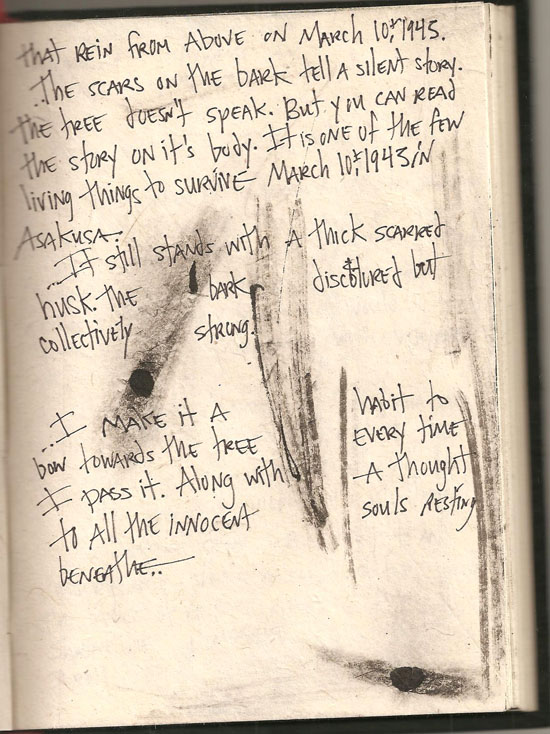 that rein from above on March 10th, 1945.
..The scars on the bark tell a silent story.
the tree doesn't speak. But you can read
the story on it's body. It is one of the few
living things to survive March 10th, 1943 in
Asakusa.
...It still stands with a thick scarred
husk. the bark discoloured but
collectively strong.
...I make it a habit to
bow towards the tree every time
I pass it. Along with a thought
to all the innocent souls resting
beneathe..